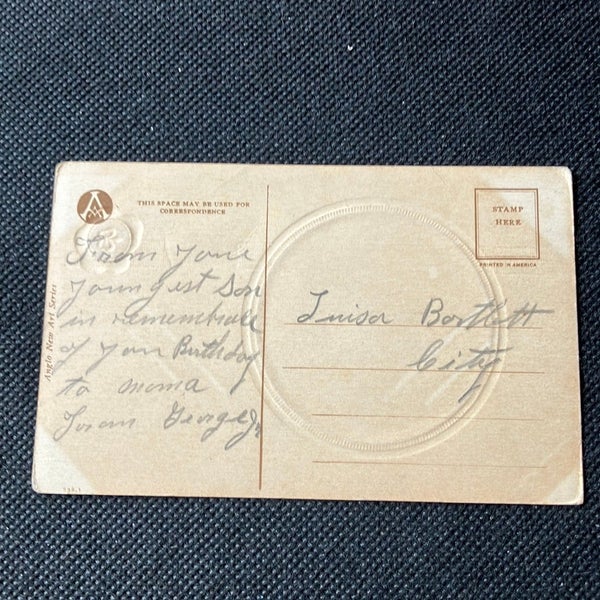 THIS SPACE MAY BE USED FOR
CORRESPONDENCE
STAMP
HERE
PRINTED IN AMERICA
From your
youngest son
in remembrance
of your Birthday
to mama
George Jr
Luisa Bartlett
City
Anglo New Art Series